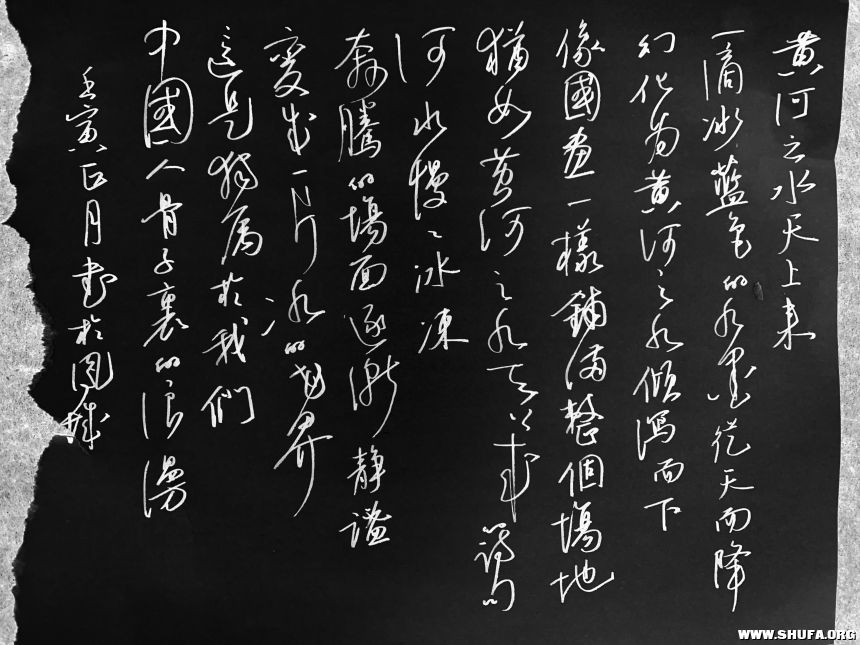 黄河之水天上来
一滴冰藍色的水墨從天而降
幻化为黄河之水傾瀉而下
像國画一樣鋪满整個場地
猶如黄河之水天上来的詩句
河水慢々冰凍
奔騰的場面逐漸静谧
變成一片冰的世界
這是獨属於我們
中國人骨子裏的浪漫
壬寅正月書於園城
WWW.SHUFA.ORG